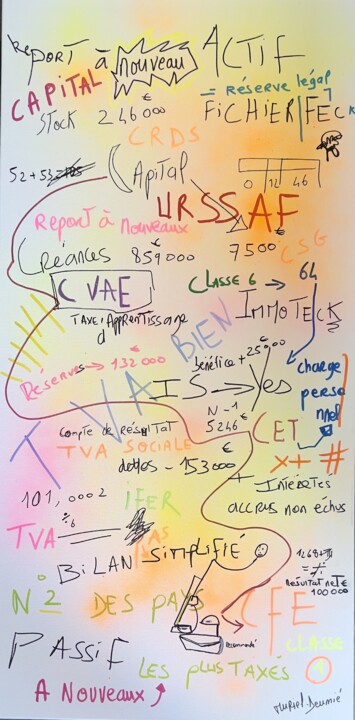 REPORT à nouveau ACTIF
CAPITAL
= Réserve légal
Stock 246000 €
FiCHiER FEC
CRDS
52+53
Capital
0 12 46
URSSAF
Report à nouveaux
Créances 859000 €
7500 €
CSG
CVAE
CLASSE 6 → 64
TAXE d'Apprentissage
IMMO TECK
BIEN
bénéfice + 250,000
Réserves → 132 000
charge personnel
TVA
IS → Yes
N-1
5246 €
Compte de résultat
CET
TVA SOCIALE
dettes - 153000 €
x + #
+ Intérêtes
accrus non échus
101,0002
iFER
TVA
BiLAN SiMPLiFiÉ
1268+70
RésultAt NET €
100 000
N° 2 DES PAYS
CFE
PASSiF
LES PLUS TAXÉS
CLASSE 1
A NouveAux